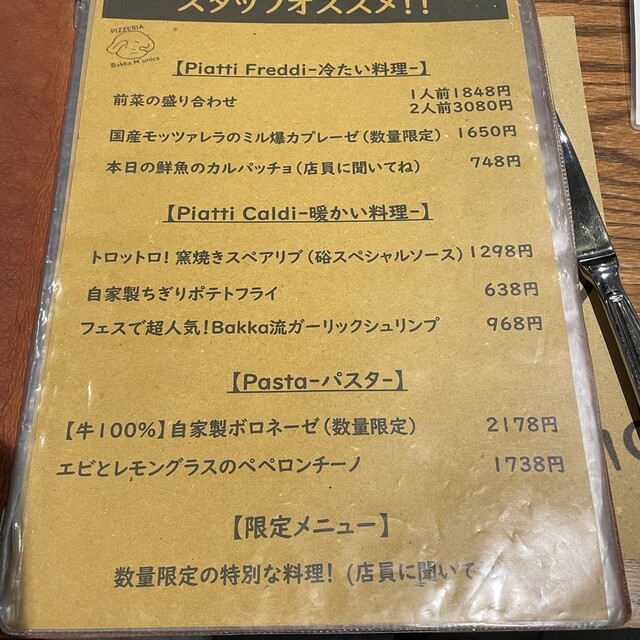 スタッフオススメ!!
PIZZERIA
Bakka M'unica
【Piatti Freddi-冷たい料理-】
前菜の盛り合わせ 1人前1848円
2人前3080円
国産モッツァレラのミル爆カプレーゼ(数量限定) 1650円
本日の鮮魚のカルパッチョ(店員に聞いてね) 748円
【Piatti Caldi-暖かい料理-】
トロットロ!窯焼きスペアリブ(硲スペシャルソース) 1298円
自家製ちぎりポテトフライ 638円
フェスで超人気!Bakka流ガーリックシュリンプ 968円
【Pasta-パスタ-】
【牛100%】自家製ボロネーゼ(数量限定) 2178円
エビとレモングラスのペペロンチーノ 1738円
【限定メニュー】
数量限定の特別な料理! (店員に聞いてね